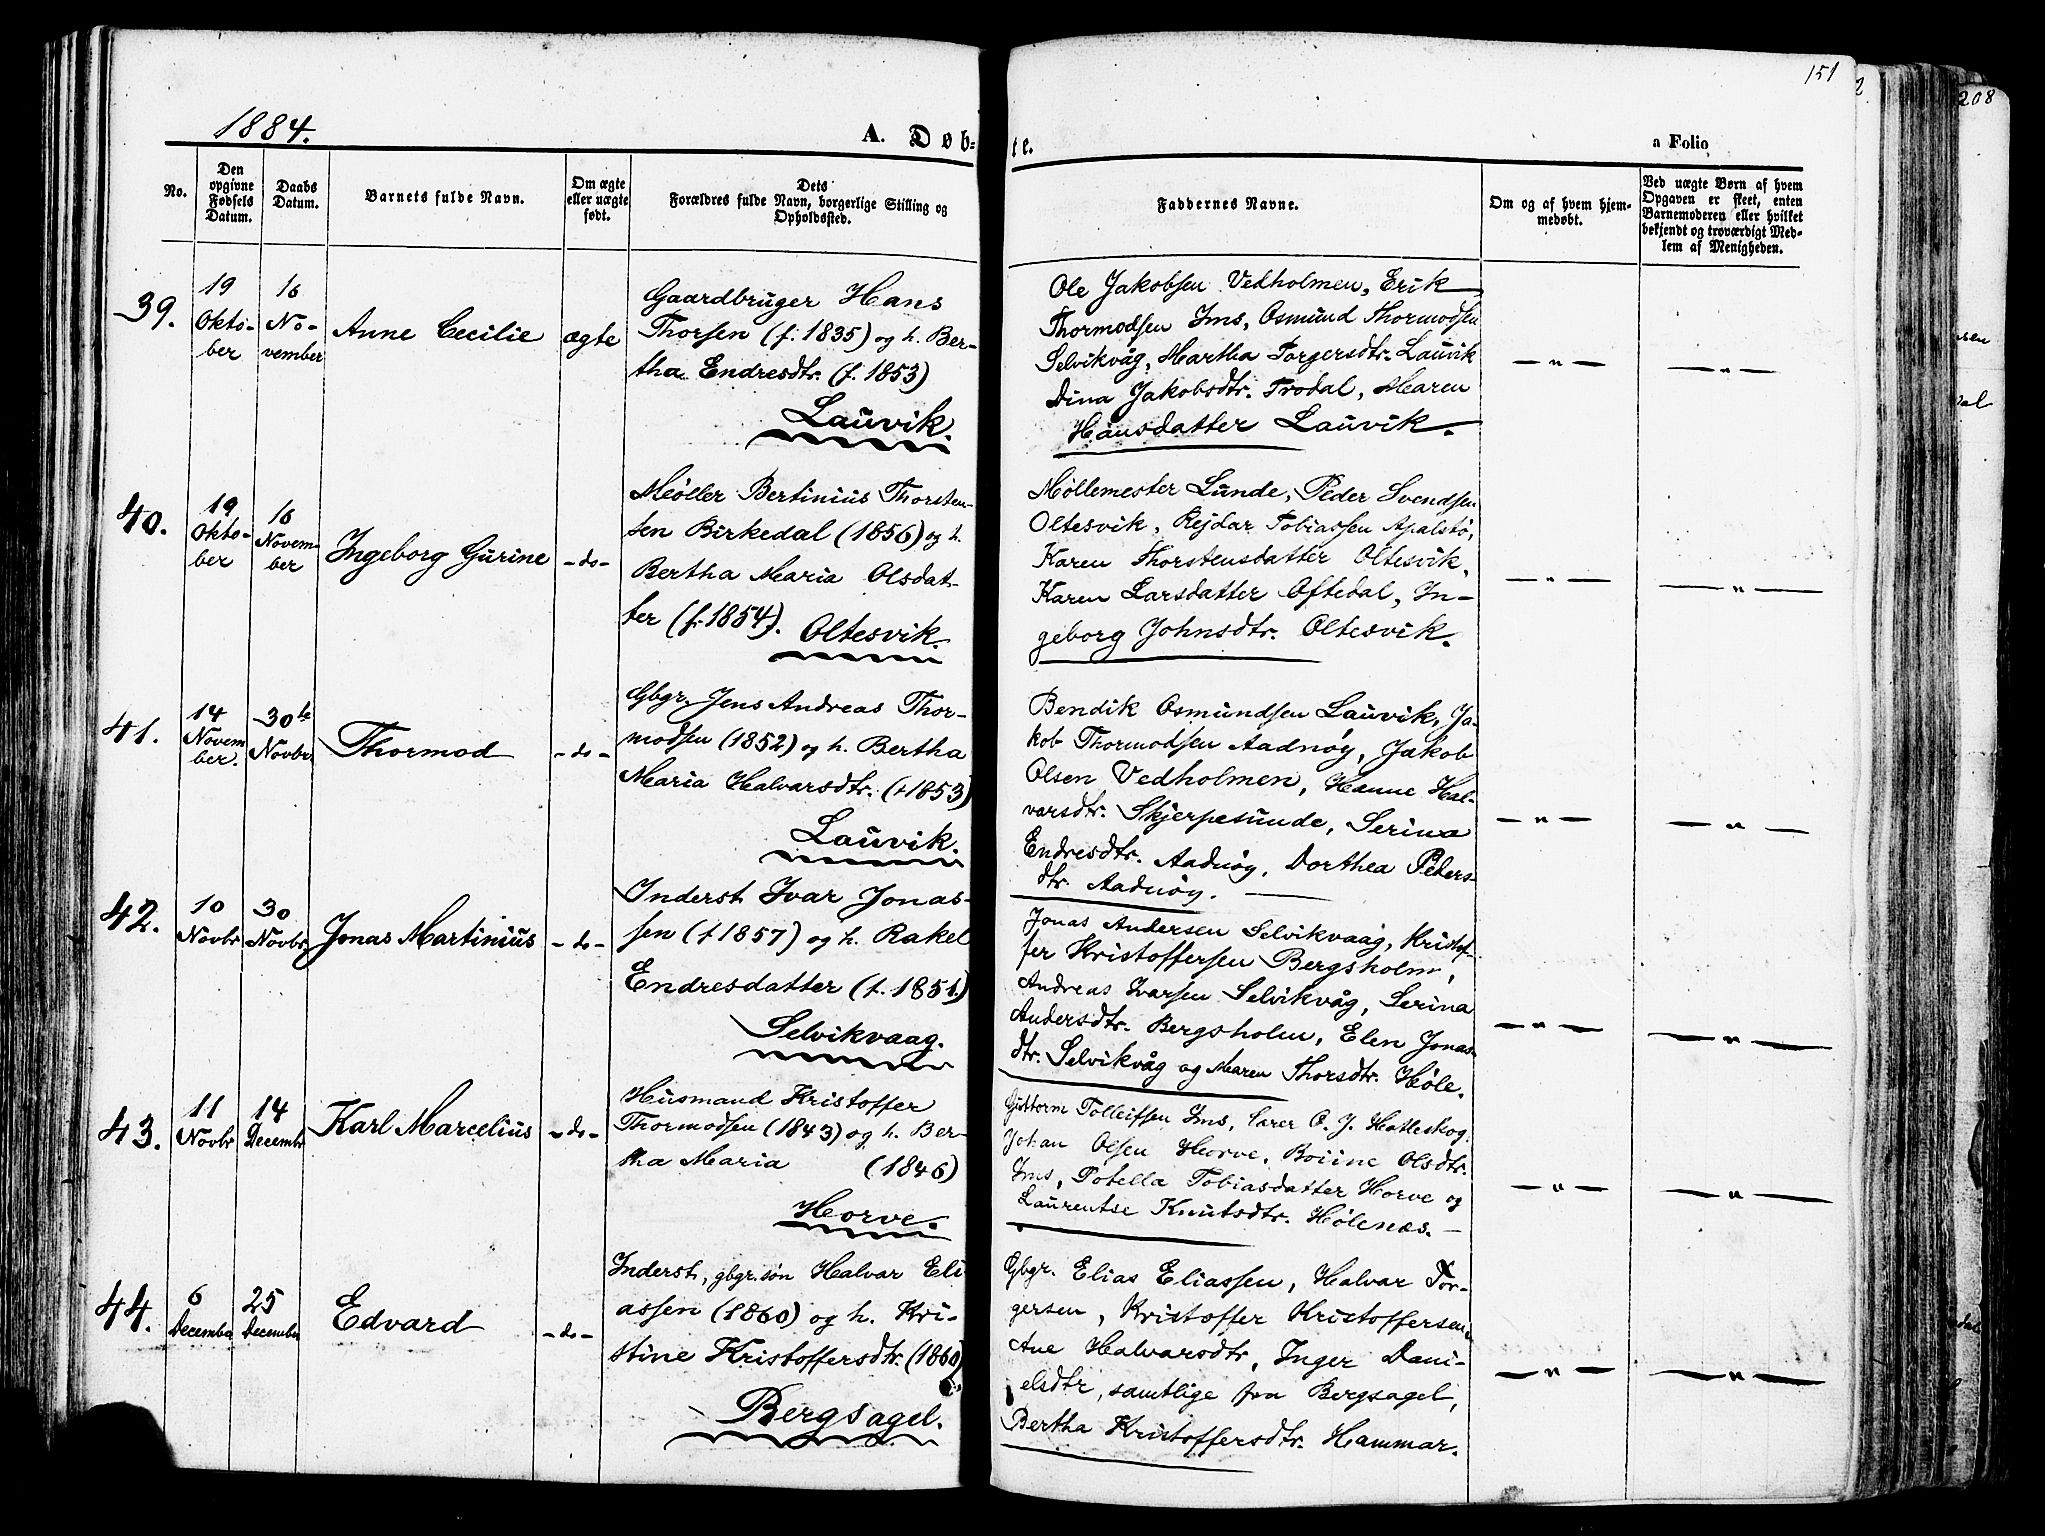 151
2
208
1884.
A. Døb-
te.
a Folio
No.
Den
opgivne
Fødsels
Datum.
Daabs
Datum.
Barnets fulde Navn.
Om ægte
eller uægte
født.
Dets
Forældres fulde Navn, borgerlige Stilling og
Opholdssted.
Faddernes Navne.
Om og af hvem hjem-
medøbt.
Ved uægte Børn af hvem
Opgaven er skeet, enten
Barnemoderen eller hvilket
bekjendt og troværdigt Med-
lem af Menigheden.
39.
19
Okto-
ber
16
No-
vember
Anne Cecilie
ægte
Gaardbruger Hans
Thorsen (f. 1835) og h. Ber-
tha Endresdtr. (f. 1853)
Lauvik.
Ole Jakobsen Vedholmen, Erik
Thormodsen Ims, Osmund Thormodsen
Selvikvåg, Martha Torgersdtr. Lauvik
Dina Jakobsdtr. Trodal, Maren
Hansdatter Lauvik.
— " —
— " —
40.
19
Okto-
ber
16
Novem-
ber
Ingeborg Gurine
- do -
Møller Bertinius Thorsten-
sen Birkedal (1856) og h.
Bertha Maria Olsdat-
ter (f. 1854).
Oltesvik.
Møllemester Lunde, Peder Svendsen
Oltesvik, Rejdar Tobiassen Apalstø,
Karen Thorstensdatter Oltesvik,
Karen Larsdatter Oftedal, In-
geborg Johnsdtr. Oltesvik.
— " —
— " —
41.
14
Novem
ber.
30te
Novbr.
Thormod
- do -
Gbgr. Jens Andreas Thor-
modsen (1852) og h. Bertha
Maria Halvarsdtr. (f 1853)
Lauvik.
Bendik Osmundsen Lauvik, Ja-
kob Thormodsen Aadnøy, Jakob
Olsen Vedholmen, Hanne Hal-
varsdtr. Skjerpesunde, Serina
Endresdtr. Aadnøy, Dorthea Peters-
dtr Aadnøy. —
— " —
— " —
42.
10
Novbr
30
Novbr.
Jonas Martinius
- do -
Inderst Ivar Jonas-
sen (f 1857) og h. Rakel
Endresdatter (f. 1851.)
Selvikvaag.
Jonas Andersen Selvikvaag, Kristof-
fer Kristoffersen Bergsholm,
Andreas Ivarsen Selvikvåg, Serina
Andersdtr. Bergsholm, Elen Jonas-
dtr. Selvikvåg og Maren Thorsdtr. Høle.
— " —
— " —
43.
11
Novbr
14
Decembr
Karl Marcelius
- do -
Husmand Kristoffer
Thormodsen (1843) og h. Ber-
tha Maria (1846)
Horve.
Guttorm Tolleifsen Ims, Lærer O. J. Hatleskog.
Johan Olsen Horve, Olsdtr.
Ims, Tobiasdatter Horve og
Laurentse Knutsdtr. Hølenæs. —
— " —
— " —
44.
6
December
25
December
Edvard
- do -
Inderst, gbgr.søn Halvar Eli
assen (1860) og h. Kri-
stine Kristoffersdtr. (1860)
Bergsagel.
Gbgr. Elias Eliassen, Halvar Tor-
gersen, Kristoffer Kristoffersen,
Ane Halvarsdtr, Inger Dani-
elsdtr, samtlige fra Bergsagel,
Bertha Kristoffersdtr. Hammar.
— " —
— " —